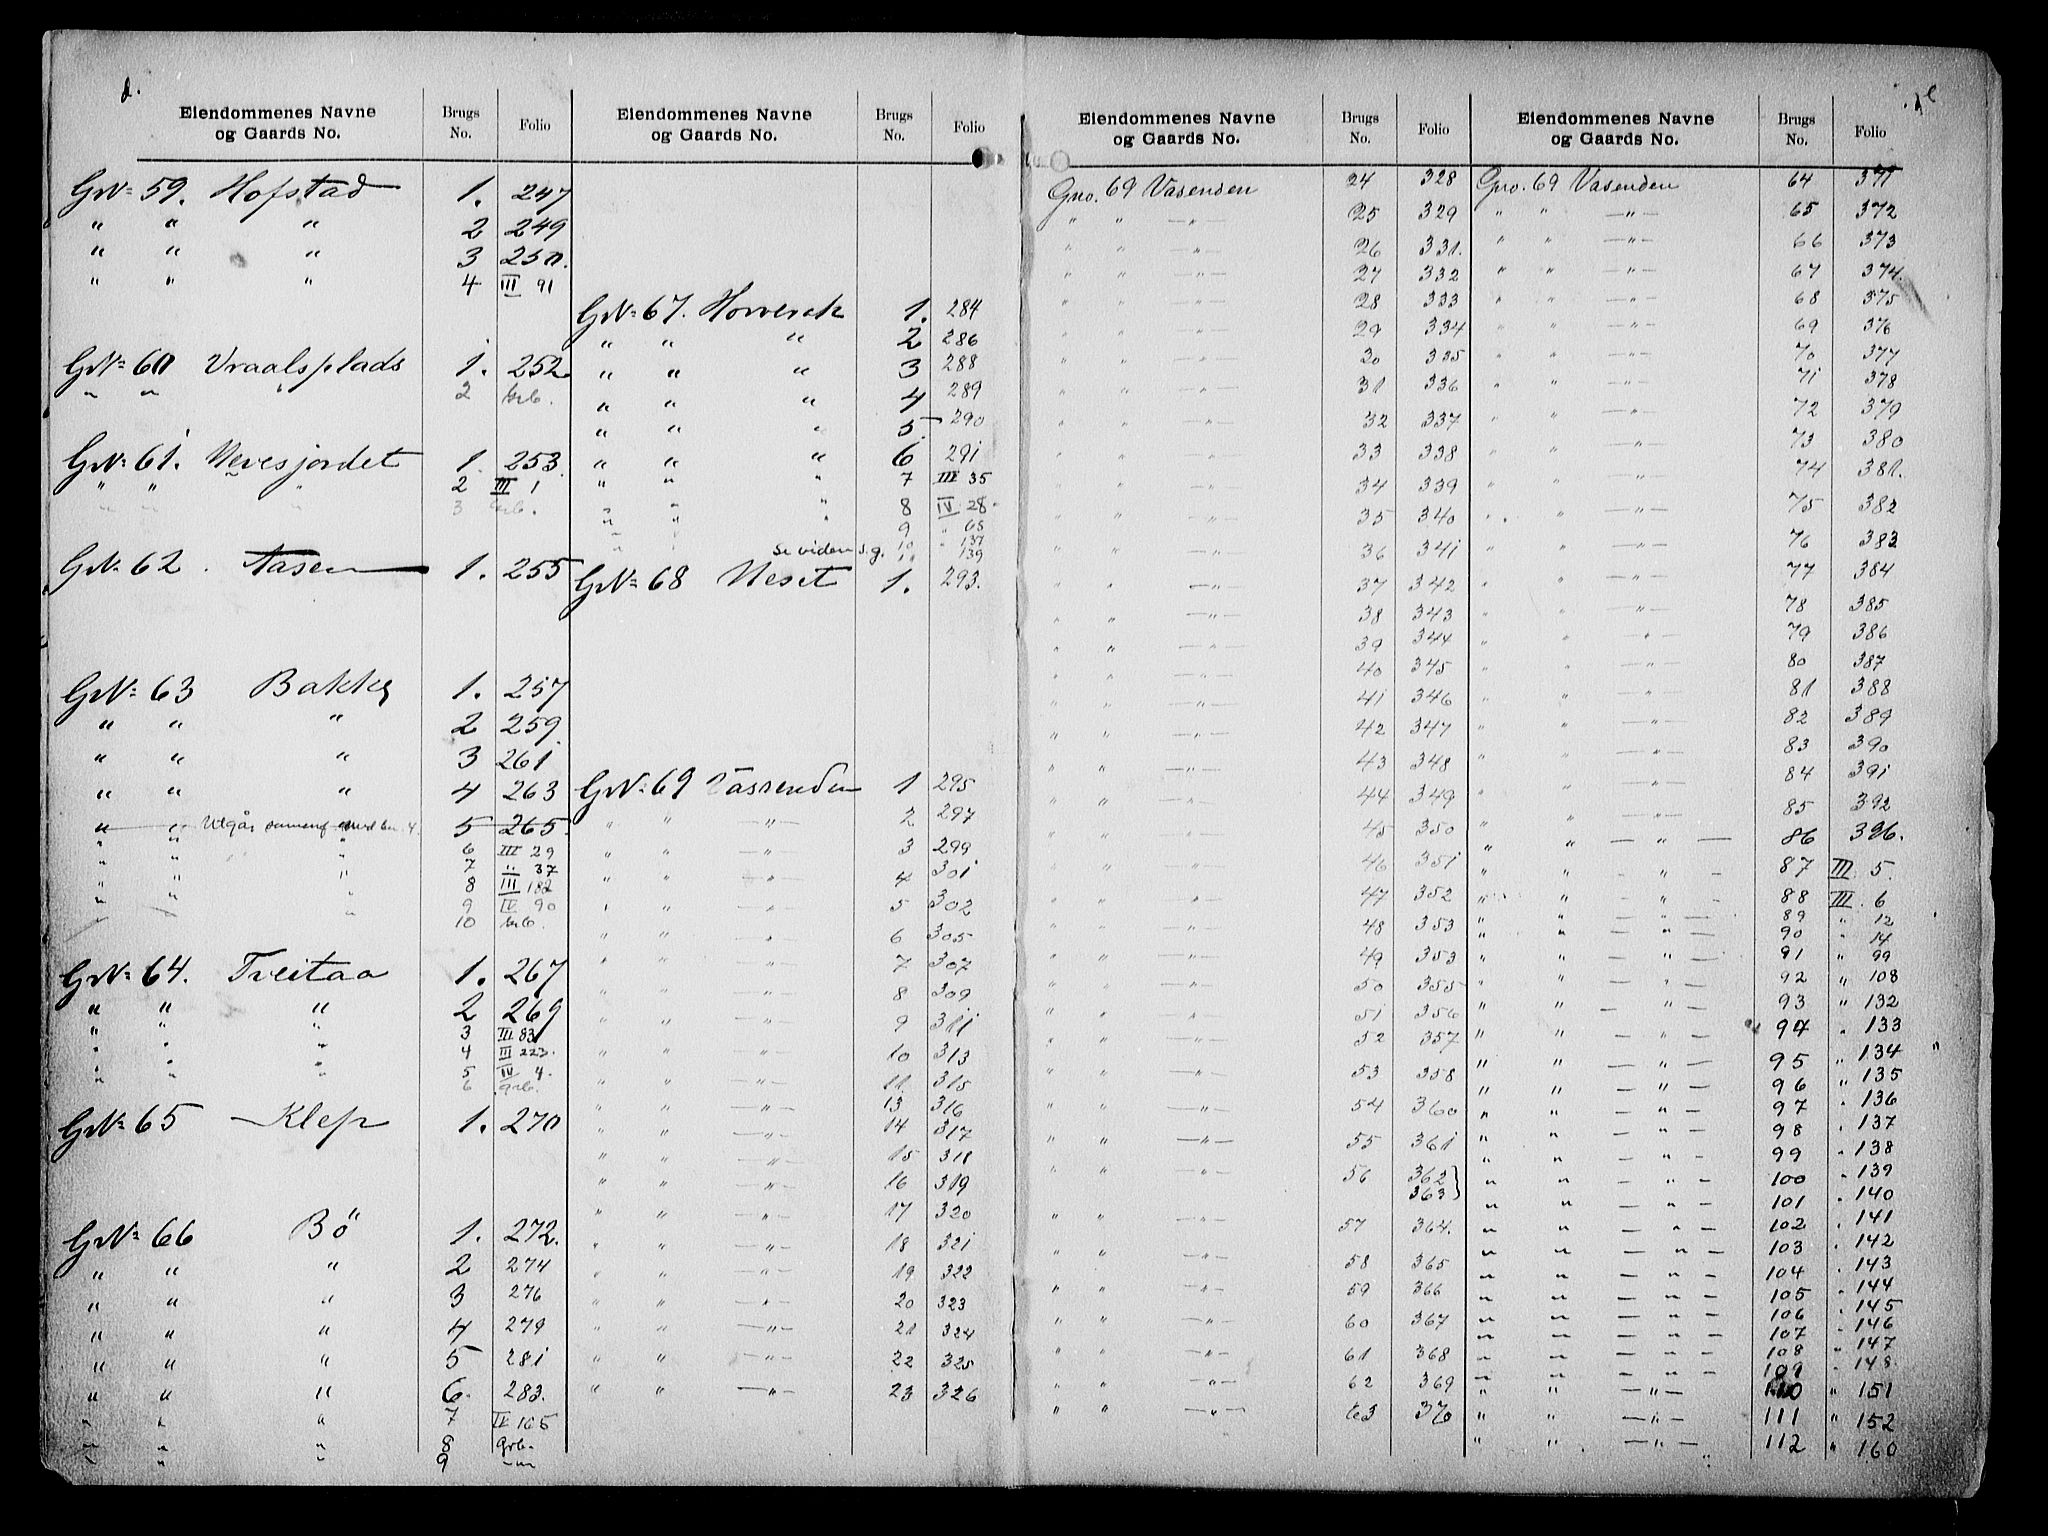 d.
Eiendommenes Navne og Gaards No. | Brugs No. | Folio
GNo 59. Hofstad 1. 247
" " " 2 249
" " " 3 250.
" " " 4 III 91
GNo 60 Vraalsplads 1. 252.
" " " 2 Grb.
GNo 61. Nevesjordet 1. 253.
" " " 2 III 1
" " " 3 Grb.
GNo 62. Aasen 1. 255
GNo 63 Bakke 1. 257
" " " 2 259
" " " 3 261
" " " 4 263
" " Utgår 5 265.
" " " 6 III 29
" " " 7 " 37
" " " 8 III 182
" " " 9 IV 90
" " " 10 Grb.
GNo 64. Tveitaa 1. 267
" " " 2 269
" " " 3 III 83
" " " 4 III 223.
" " " 5 IV 4.
" " " 6 grb.
GNo 65 Klep 1. 270
GNo 66 Bö 1. 272.
" " " 2 274
" " " 3 276
" " " 4 279
" " " 5 281
" " " 6. 283.
" " " 7 IV 105
" " " 8 grb.
" " " 9 -"-
Eiendommenes Navne og Gaards No. | Brugs No. | Folio
GNo 67. Horverak 1. 284
" " " 2 286
" " " 3 288
" " " 4 289
" " " 5. 290
" " " 6 291
" " " 7 III 35
" " " 8 IV 28
" " " 9 " 65
" " 10 " 137
se viden s. g. 11 139
GNo 68 Neset 1. 293.
GNo 69 Vassenden 1 295
" " —"— 2 297
" " —"— 3 299
" " —"— 4 301
" " —"— 5 302
" " —"— 6 305
" " —"— 7 307
" " —"— 8 309
" " —"— 9 311
" " —"— 10 313
" " —"— 11. 315
" " —"— 13 316
" " —"— 14 317
" " —"— 15 318
" " —"— 16 319
" " —"— 17 320
" " —"— 18 321
" " —"— 19 322
" " —"— 20 323
" " —"— 21 324
" " —"— 22 325
" " —"— 23 326
Eiendommenes Navne og Gaards No. | Brugs No. | Folio
Gno. 69 Vasenden 24 328
" " —"— 25 329
" " —"— 26 331.
" " —"— 27 332
" " —"— 28 333
" " —"— 29 334
" " —"— 30 335
" " —"— 31 336
" " —"— 32 337
" " —"— 33 338
" " —"— 34 339
" " —"— 35 340
" " —"— 36 341
" " —"— 37 342
" " —"— 38 343
" " —"— 39 344
" " —"— 40 345
" " —"— 41 346
" " —"— 42 347
" " —"— 43 348
" " —"— 44 349
" " —"— 45 350
" " —"— 46 351
" " —"— 47 352
" " —"— 48 353
" " —"— 49 353
" " —"— 50 355
" " —"— 51 356
" " —"— 52 357
" " —"— 53 358
" " —"— 54 360
" " —"— 55 361
" " —"— 56 362
363}
" " —"— 57 364.
" " —"— 58 365
" " —"— 59 366
" " —"— 60 367
" " —"— 61 368
" " —"— 62 369
" " —"— 63 370
Eiendommenes Navne og Gaards No. | Brugs No. | Folio
Gno. 69 Vasenden 64 371
" " —"— 65 372
" " —"— 66 373
" " —"— 67 374.
" " —"— 68 375
" " —"— 69 376
" " —"— 70 377
" " —"— 71 378
" " —"— 72 379
" " —"— 73 380
" " —"— 74 381.
" " —"— 75 382
" " —"— 76 383
" " —"— 77 384
" " —"— 78 385
" " —"— 79 386
" " —"— 80 387
" " —"— 81 388
" " —"— 82 389
" " —"— 83 390
" " —"— 84 391
" " —"— 85 392
" " —"— 86 396.
" " —"— 87 III 5.
" " —"— 88 III. 6
" " —"— 89 " 12
" " —"— 90 " 14
" " —"— 91 " 99
" " —"— 92 " 108
" " —"— 93 " 132
" " —"— 94 " 133
" " —"— 95 " 134
" " —"— 96 " 135
" " —"— 97 " 136
" " —"— 98 " 137
" " —"— 99 " 138
" " —"— 100 " 139
" " —"— 101 " 140
" " —"— 102 " 141
" " —"— 103 " 142
" " —"— 104 " 143
" " —"— 105 " 144
" " —"— 106 " 145
" " —"— 107 " 146
" " —"— 108 " 147
" " —"— 109 " 148
" " —"— 110 " 151
" " —"— 111 " 152
" " —"— 112 " 160